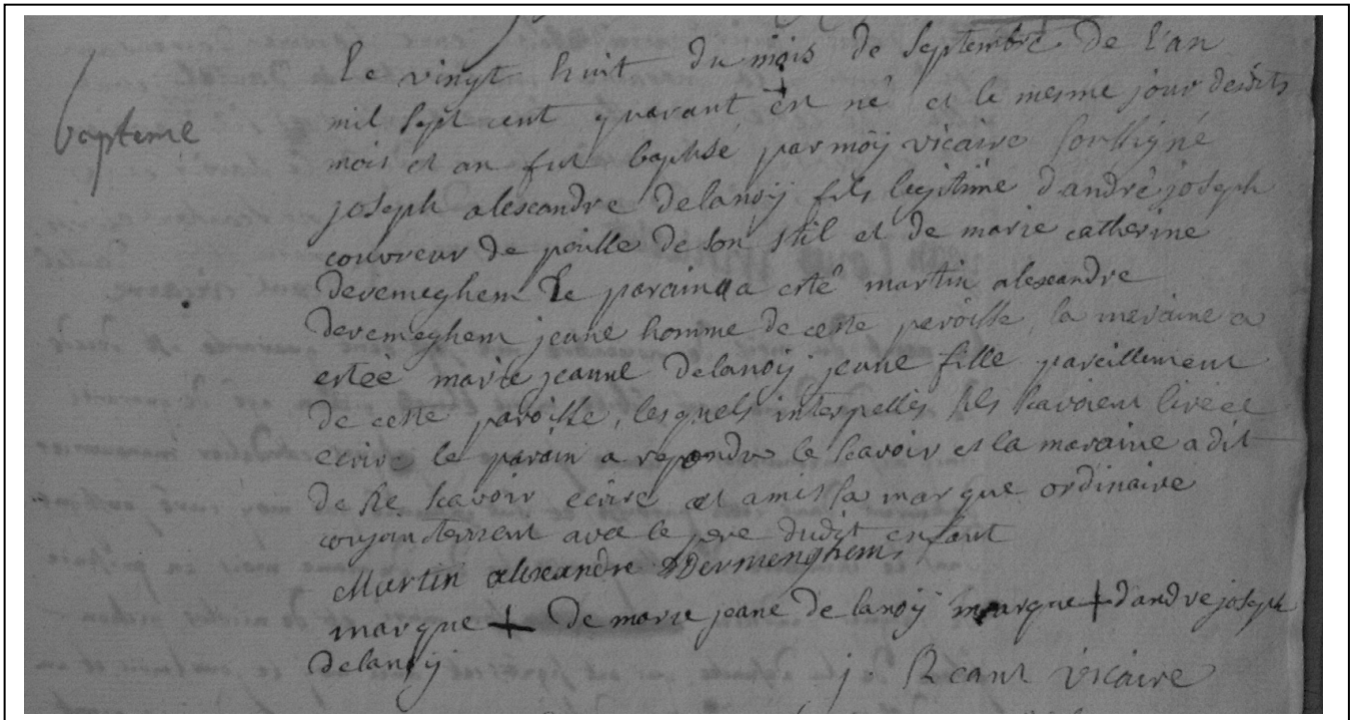 bapteme
Le vingt huit du mois de septembre de l'an
mil sept cent quarant est né et le mesme jour desdits
mois et an fut baptisé par moÿ vicaire soussigné
joseph alexandre delanoÿ fils legitime d'andré joseph
couvreur de paille de son stil et de marie catherine
devemeghem le parain a esté martin alexandre
devemeghem jeune homme de ceste paroisse la maraine a
estée marie jeanne delanoÿ jeune fille pareillement
de ceste paroisse, lesquels interpellés sils scavoient lire et
ecrire le parain a repondre le scavoir et la maraine a dit
de ne scavoir ecrire et a mis sa marque ordinaire
conjointement avec le pere dudit enfant
Martin alexandre Dermenghem
marque + De marie jeane de lanoÿ marque + d'andre joseph
delanoÿ
j. vicaire